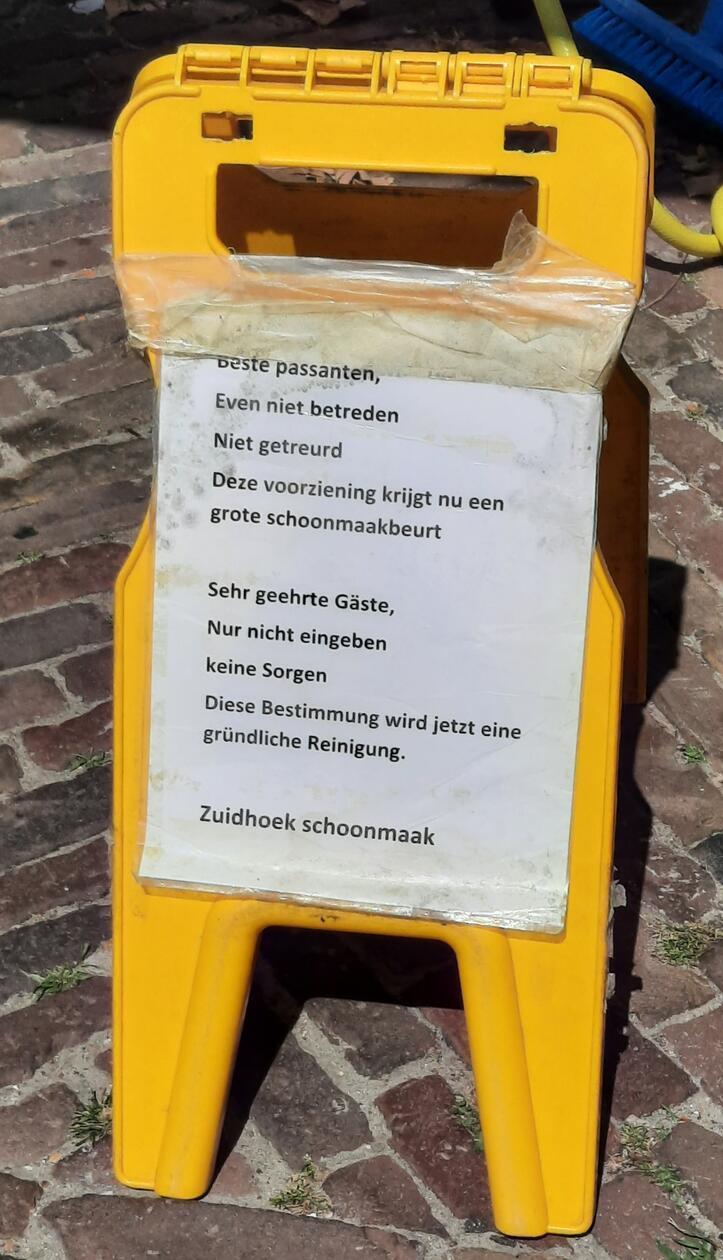 Beste passanten,
Even niet betreden
Niet getreurd
Deze voorziening krijgt nu een
grote schoonmaakbeurt
Sehr geehrte Gäste,
Nur nicht eingeben
keine Sorgen
Diese Bestimmung wird jetzt eine
gründliche Reinigung.
Zuidhoek schoonmaak